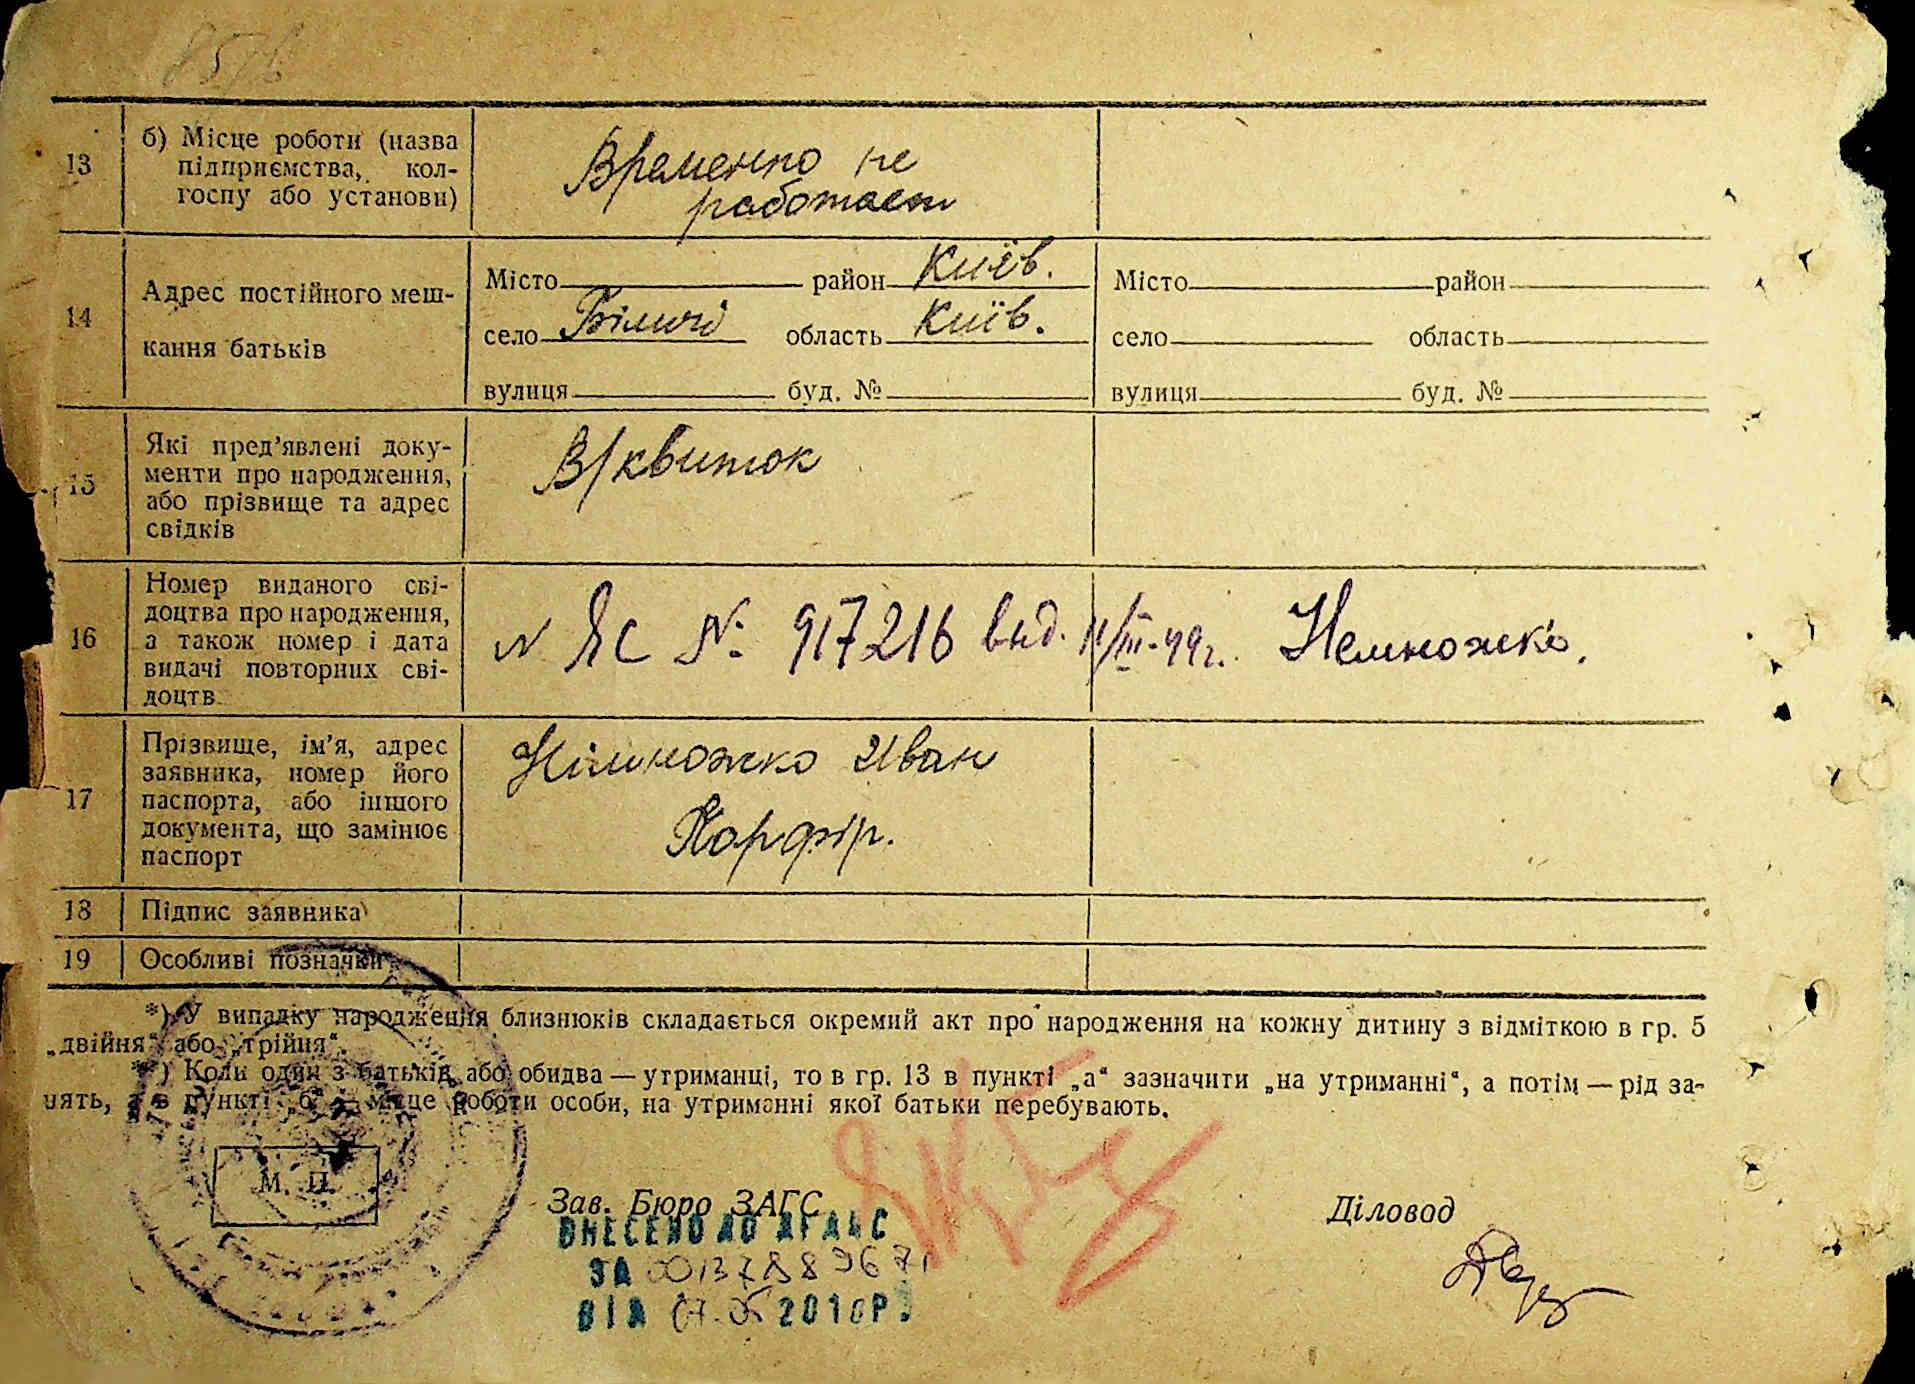 13
б) Місце роботи (назва
підприємства, кол-
госпу або установи)
Временно не
работает
14
Адрес постійного меш-
кання батьків
Місто район Київ. Місто район
село Біличі область Київ. село область
вулиця буд. № вулиця буд. №
15
Які пред’явлені доку-
менти про народження,
або прізвище та адрес
свідків
В/квиток
16
Номер виданого сві-
доцтва про народження,
а також номер і дата
видачі повторних сві-
доцтв
N ЯС № 917216 вид. 11/III-49г. Немножко.
17
Прізвище, ім’я, адрес
заявника, номер його
паспорта, або іншого
документа, що замінює
паспорт
Німножко Иван
Порфір.
18 Підпис заявника
19 Особливі позначки
*) У випадку народження близнюків складається окремий акт про народження на кожну дитину з відміткою в гр. 5
„двійня“ або „трійня“.
**) Коли один з батьків або обидва — утриманці, то в гр. 13 в пункті „а“ зазначити „на утриманні“, а потім — рід за-
нять, а в пункті „б“ — місце роботи особи, на утриманні якої батьки перебувають.
М. П.
Зав. Бюро ЗАГС
Діловод
ВНЕСЕНО ДО ДРАЦС
ЗА 00137889671
ВІД 07.05 2010Р.